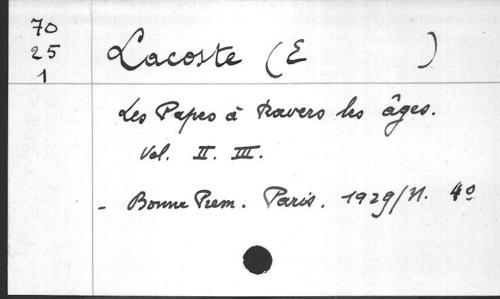 70
25
1
Lacoste (E )
Les Papes à travers les âges.
Vol. II. III.
- Bonne Prem. Paris. 1929/31. 4º